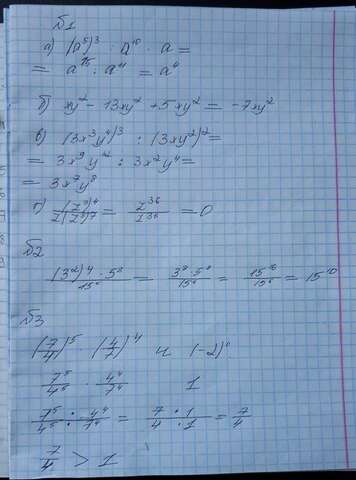 б1
а) (a⁵)³ · a¹⁰ · a =
= a¹⁵ : a¹¹ = a⁴
б) xy² - 13xy² + 5xy² = -7xy²
в) (3x³y⁴)³ : (3xy²)² =
= 3x⁹y¹² : 3x²y⁴ =
= 3x⁷y⁸
= z³⁶/z³⁶ = 0
б2
(3²)⁴ · 5⁸/15⁶ = 3⁸ · 5⁸/15⁶ = 15¹⁶/15⁶ = 15¹⁰
б3
(7/4)⁵ · (4/7)⁴ и (-2)⁰
7⁵/4⁵ · 4⁴/7⁴ 1
7⁵/4⁵ · 4⁴/7⁴ = 7 · 1/4 · 1 = 7/4
7/4 > 1